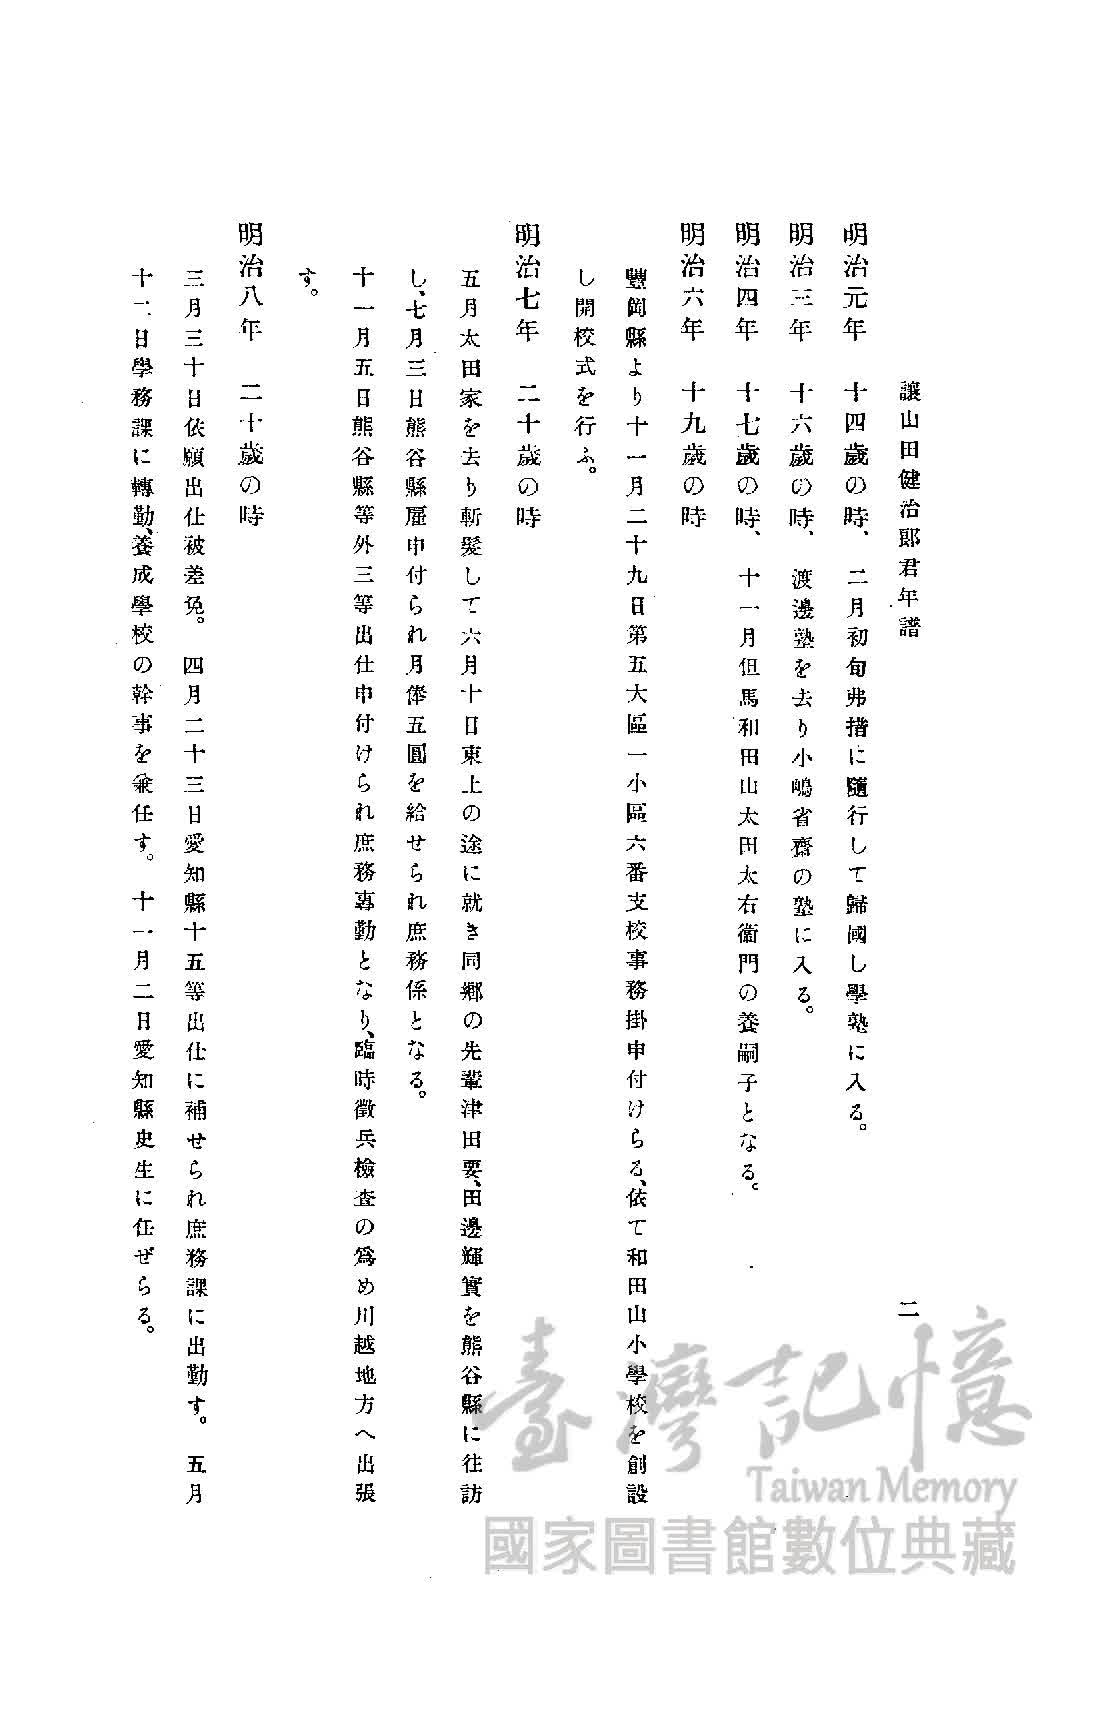 讓山田健治郎君年譜　二
明治元年　十四歲の時、二月初旬弗措に隨行して歸國し學塾に入る。
明治三年　十六歲の時、渡邊塾を去り小嶋省齋の塾に入る。
明治四年　十七歲の時、十一月但馬和田山太田太右衞門の養嗣子となる。
明治六年　十九歲の時
豐岡縣より十一月二十九日第五大區一小區六番支校事務掛申付けらる、依て和田山小學校を創設
し開校式を行ふ。
明治七年　二十歲の時
五月太田家を去り斬髮して六月十日東上の途に就き同鄕の先輩津田要、田邊輝實を熊谷縣に往訪
し、七月三日熊谷縣雇申付られ月俸五圓を給せられ庶務係となる。
十一月五日熊谷縣等外三等出仕申付けられ庶務專勤となり、臨時徵兵檢査の爲め川越地方へ出張
す。
明治八年　二十歲の時
三月三十日依願出仕被差免。　四月二十三日愛知縣十五等出仕に補せられ庶務課に出勤す。　五月
十二日學務課に轉勤、養成學校の幹事を兼任す。　十一月二日愛知縣史生に任ぜらる。
臺灣記憶
Taiwan Memory
國家圖書館數位典藏